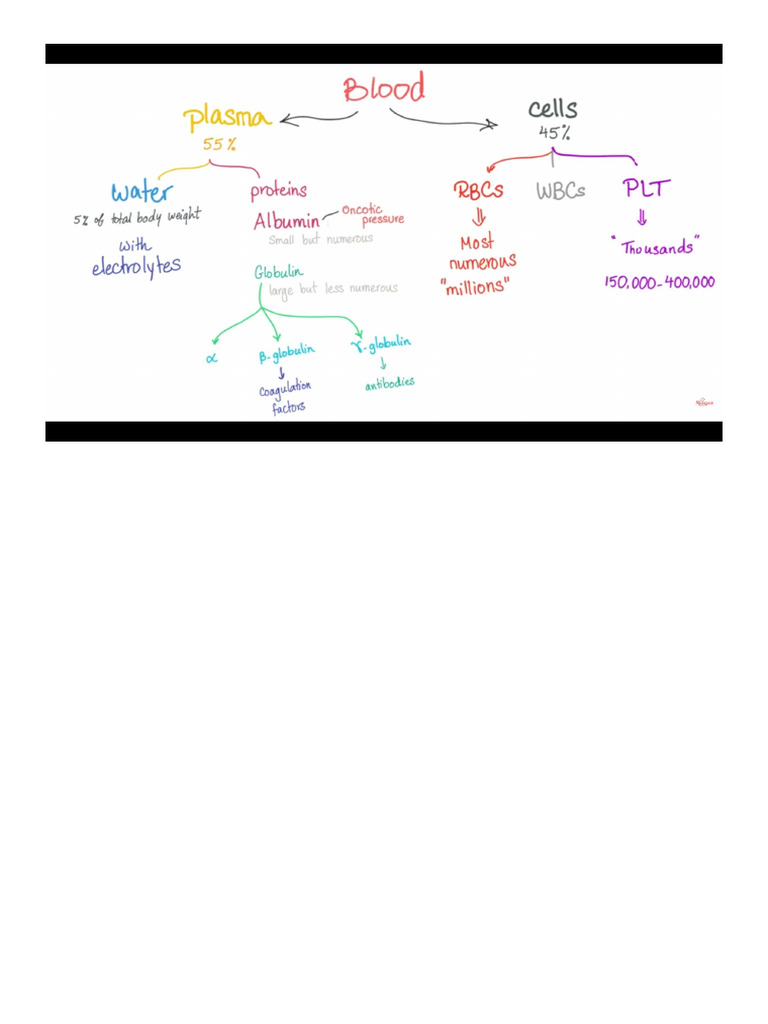 Blood
plasma
55%
cells
45%
water
5% of total body weight
with
electrolytes
proteins
Albumin
Oncotic
pressure
Small but numerous
Globulin
large but less numerous
α
β-globulin
coagulation
factors
γ-globulin
antibodies
RBCs
Most
numerous
"millions"
WBCs
PLT
"Thousands"
150,000-400,000